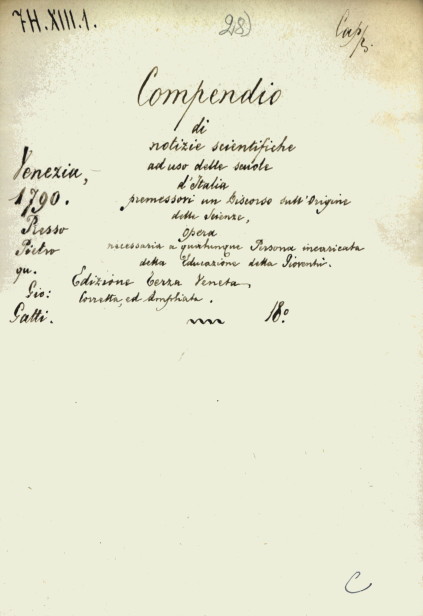 7H.XIII.1.
28)
Compendio
di
notizie scientifiche
ad uso delle scuole
d'Italia
premessovi un Discorso sull'Origine
delle Scienze,
Opera
necessaria a qualunque Persona incaricata
della Educazione della Gioventù.
Edizione terza Veneta
Corretta, ed Ampliata.
18º
Venezia,
1790.
Presso
Pietro
qu.
Gio:
Gatti.
C